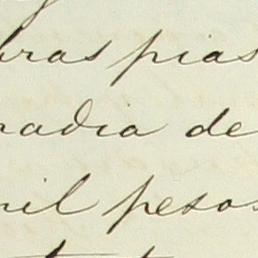 bras pias
nadia de
mil pesos